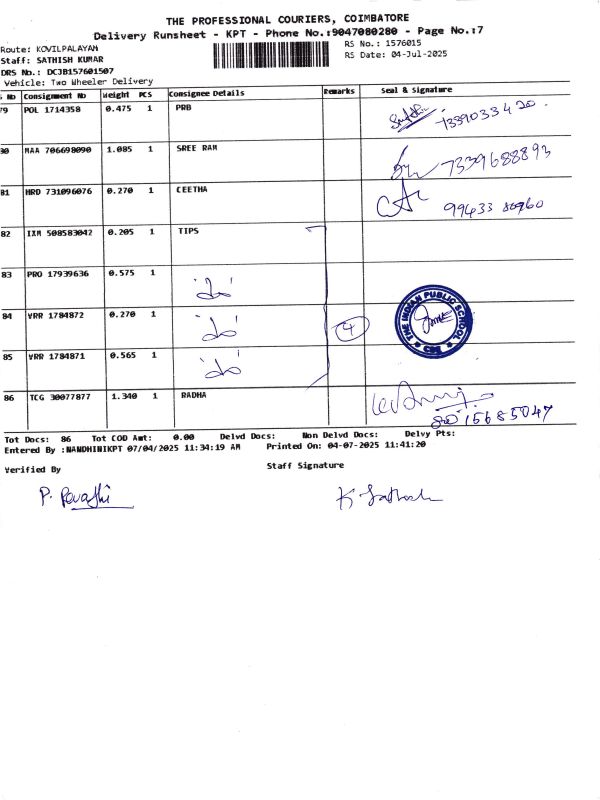 THE PROFESSIONAL COURIERS, COIMBATORE
Delivery Runsheet - KPT - Phone No.:9047080280 - Page No.:7
Route: KOVILPALAYAM
RS No.: 1576015
Staff: SATHISH KUMAR
RS Date: 04-Jul-2025
DRS No.: DCJB157601507
Vehicle: Two Wheeler Delivery
S No Consignment No Weight PCS Consignee Details Remarks Seal & Signature
79 POL 1714358 0.475 1 PRB 7339033420
80 MAA 706698090 1.085 1 SREE RAM 7339688893
81 HRD 731096076 0.270 1 CEETHA 99433 80960
82 IXM 508583042 0.205 1 TIPS
83 PRO 17939636 0.575 1
84 VRR 1784872 0.270 1 4 THE INDIAN PUBLIC SCHOOL
85 VRR 1784871 0.565 1
86 TCG 30077877 1.340 1 RADHA 8015685047
Tot Docs: 86 Tot COD Amt: 0.00 Delvd Docs: Non Delvd Docs: Delvy Pts:
Entered By :NANDHINIKPT 07/04/2025 11:34:19 AM Printed On: 04-07-2025 11:41:20
Verified By Staff Signature
P. Revathi K Sathish